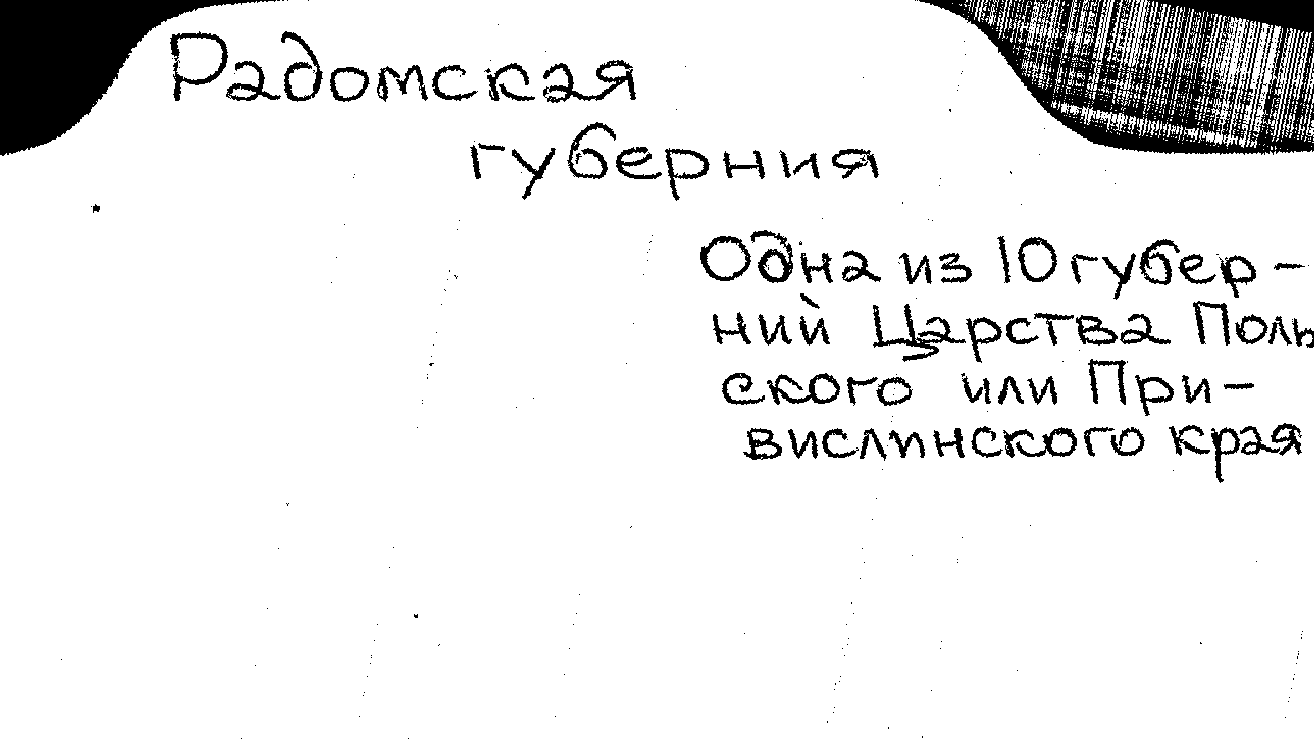 Радомская
губерния
Одна из 10 губер-
ний Царства Поль
ского или При-
вислинского края